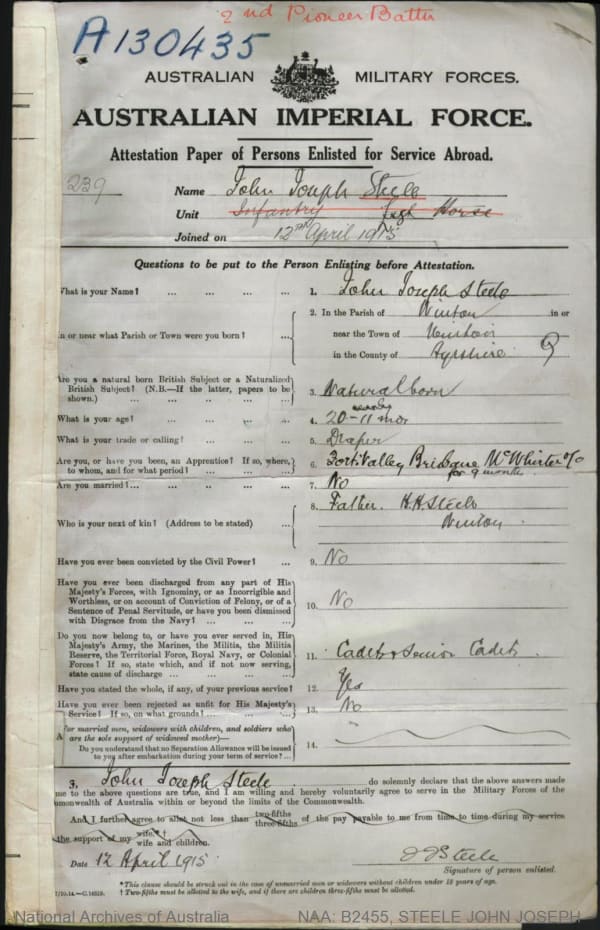 2nd Pioneer Battn
A130435
AUSTRALIAN MILITARY FORCES.
AUSTRALIAN IMPERIAL FORCE.
Attestation Paper of Persons Enlisted for Service Abroad.
239 Name John Joseph Steele
Unit Infantry Light Horse
Joined on 12th April 1915
Questions to be put to the Person Enlisting before Attestation.
What is your Name? ... ... ... ... 1. John Joseph Steele
2. In the Parish of Winton in or
In or near what Parish or Town were you born? ... near the Town of Winton
in the County of Ayrshire
Are you a natural born British Subject or a Naturalized
British Subject? (N.B.—If the latter, papers to be
shown.) 3. Natural born
What is your age? 4. 20-11 mos
What is your trade or calling? 5. Draper
Are you, or have you been, an Apprentice? If so, where,
to whom, and for what period? 6. Fort Valley Brisbane McWhirter
for 9 months
Are you married?... 7. No
8. Father. H.H. Steele
Who is your next of kin? (Address to be stated) ... Winton
Have you ever been convicted by the Civil Power? 9. No
Have you ever been discharged from any part of His
Majesty's Forces, with Ignominy, or as Incorrigible and
Worthless, or on account of Conviction of Felony, or of a
Sentence of Penal Servitude, or have you been dismissed
with Disgrace from the Navy? ... 10. No
Do you now belong to, or have you ever served in, His
Majesty's Army, the Marines, the Militia, the Militia
Reserve, the Territorial Force, Royal Navy, or Colonial
Forces? If so, state which, and if not now serving,
state cause of discharge ... 11. Cadet & Senior Cadets
Have you stated the whole, if any, of your previous service? 12. Yes
Have you ever been rejected as unfit for His Majesty's
Service? If so, on what grounds? ... 13. No
(For married men, widowers with children, and soldiers who
are the sole support of widowed mother)—
Do you understand that no Separation Allowance will be issued
to you after embarkation during your term of service? ... 14.
John Joseph Steele do solemnly declare that the above answers made
me to the above questions are true, and I am willing and hereby voluntarily agree to serve in the Military Forces of the
Commonwealth of Australia within or beyond the limits of the Commonwealth.
And I further agree to allot not less than two-fifths three-fifths of the pay payable to me from time to time during my service
the support of my wife.*† wife and children.
Date 12 April 1915 J J Steele
Signature of person enlisted.
*This clause should be struck out in the case of unmarried men or widowers without children under 18 years of age.
† Two-fifths must be allotted to the wife, and if there are children three-fifths must be allotted.
National Archives of Australia NAA: B2455, STEELE JOHN JOSEPH